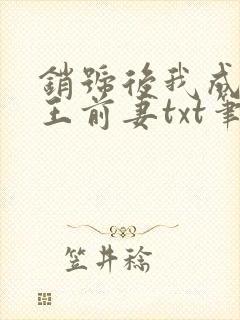 銷號後我成
王前妻txt筆
笠井稔